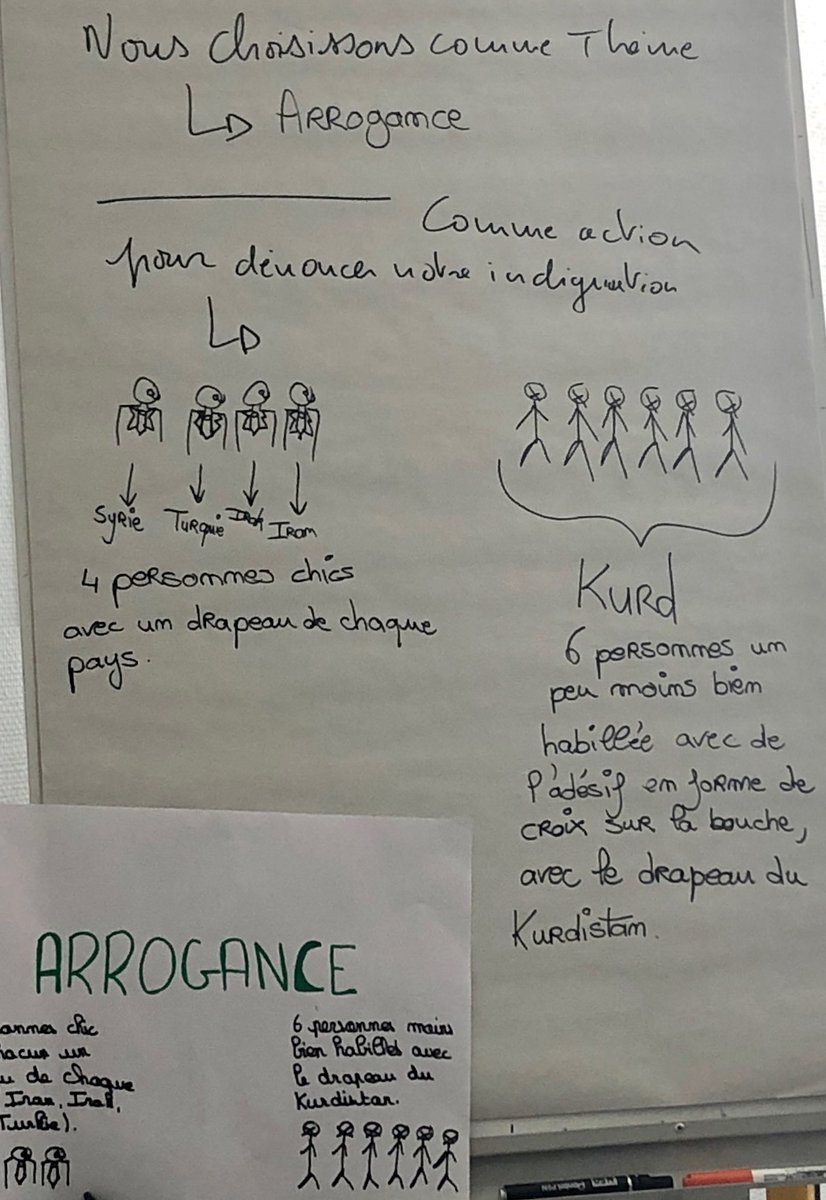 Nous choisissons comme Thème
Arrogance
Comme action
pour dénoncer notre indignation
Syrie Turquie Irak Iran
4 personnes chics
avec un drapeau de chaque
pays.
Kurd
6 personnes un
peu moins bien
habillée avec de
l'adésif en forme de
croix sur la bouche,
avec le drapeau du
Kurdistan.
ARROGANCE
onnes chic
hacun un
u de chaque
Iran, Irak,
6 personnes moins
bien habillés avec
le drapeau du
Kurdistan.